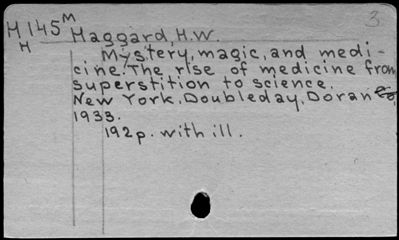 H145M Haggard, H.W. 3
H
Mystery, magic, and medi-
cine. The rise of medicine from
superstition to science.
New York, Doubleday, Doran
1933.
192p. with ill.